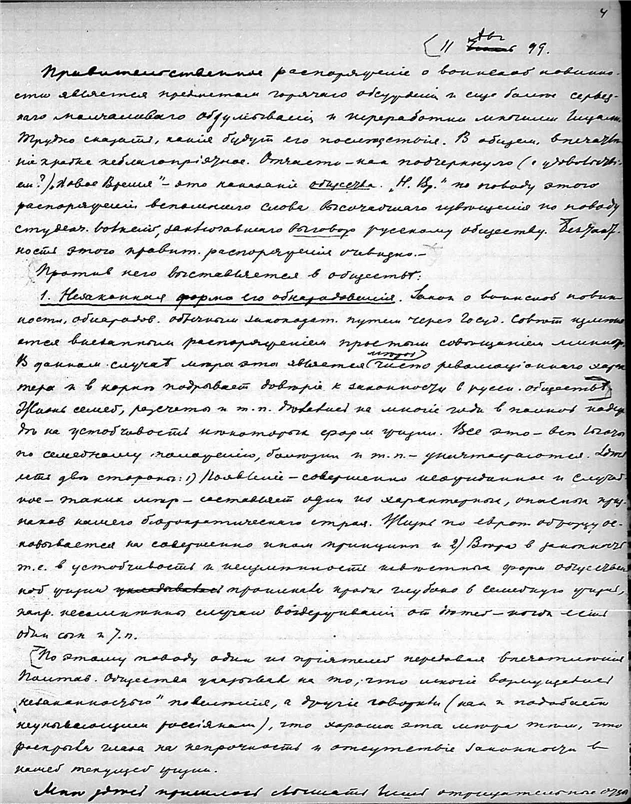 4
11 Авг 99.
Правительственное распоряженіе о воинской повинно-
сти является предметом горячаго обсужденія и еще более серьез-
наго молчаливаго обдумыванія и переработки многими лицами.
Трудно сказать, какія будут его последствія. В общем, впечатле-
ніе крайне неблагопріятное. Отчасти – как подчеркнуло (с удовольстві-
ем?) „Новое Время" – это наказаніе общества. „Н. Вр." по поводу этого
распоряженія вспомнило слова Высочайшаго по поводу
студен. волненій, выговор русскому обществу.
ность этого правит. распоряженія очевидна. –
Против него выставляется в обществе:
1. Незаконная форма его обнародованія. Закон о воинской повин-
ности, обнародов. обычным законодат. путем через Госуд. Совет изменя-
ется внезапным распоряженіем простым совещаніем министр.
В данном случае мера эта является чисто революціоннаго харак-
тера и в корне подрывает доверіе к законности в русск. обществе.
Жизнь семей, разсчеты и т. п. на многіе годы в
на устойчивость некоторых форм жизни. Все это – все льготы
по семейному положенію, болезни и т. п. – уничтожаются.
две стороны: 1) Появленіе – совершенно неожиданное и случай-
ное – таких мер – составляет один из характерных, опасных приз-
наков нашего бюрократическаго строя. Жизнь по европ. образцу ос-
новывается на совершенно ином принципе и 2) Вера в законность
т.е. в устойчивость и неизменность известных форм обществен-
ной жизни проникла крайне глубоко в семейную жизнь,
напр. несомненны случаи воздержанія от детей – когда есть
один сын и т. п.
По этому поводу один из пріятелей передавая впечатленія
Полтав. Общества указывал на то, что многіе возмущаются
„незаконностью" повеленія, а другіе говорят (как и подобает
неунывающим россіянам), что хороша эта мера тем, что
раскрыва глаза на непрочность и отсутствіе законности в
нашей текущей жизни.
Мне уже пришлось слышать отрицательное